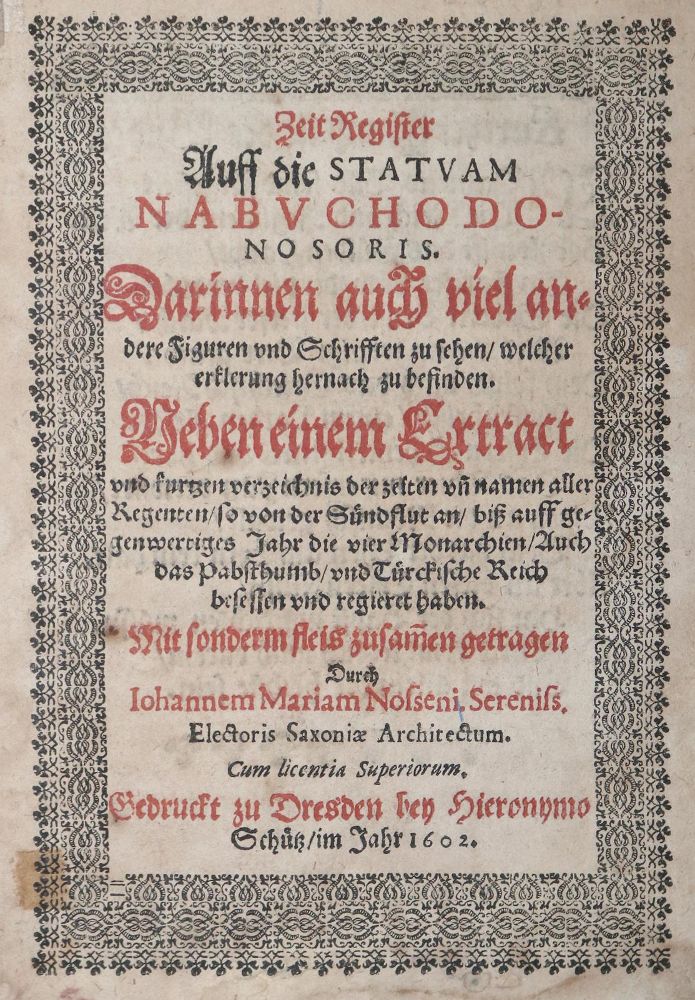 Zeit Register
Auff die STATVAM
NABVCHODO-
NOSORIS.
Darinnen auch viel an-
dere Figuren vnd Schrifften zu sehen/ welcher
erklerung hernach zu befinden.
Neben einem Extract
vnd kurtzen verzeichnis der zeiten vñ namen aller
Regenten/ so von der Sündflut an/ biß auff ge-
genwertiges Jahr die vier Monarchien/ Auch
das Pabsthumb/ vnd Türckische Reich
besessen vnd regieret haben.
Mit sonderm fleis zusam̃en getragen
Durch
Iohannem Mariam Nosseni, Sereniss.
Electoris Saxoniæ Architectum.
Cum licentia Superiorum.
Gedruckt zu Dresden bey Hieronymo
Schütz/ im Jahr 1602.